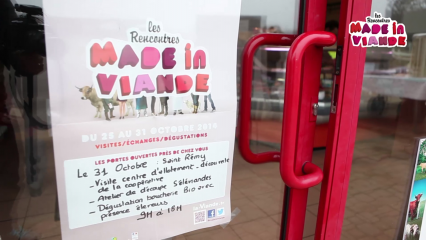 les
Rencontres
MADE in
VIANDE
DU 25 AU 31 OCTOBRE
VISITES/ÉCHANGES/DÉGUSTATIONS
LES PORTES OUVERTES PRÈS DE CHEZ VOUS
Le 31 Octobre Saint Rémy
- Visite centre d'allotement - découverte
de la coopérative
- Atelier de découpe
- Dégustation boucherie Bio avec
présence éleveurs
9H à 18H
les
Rencontres
MADE in
VIANDE